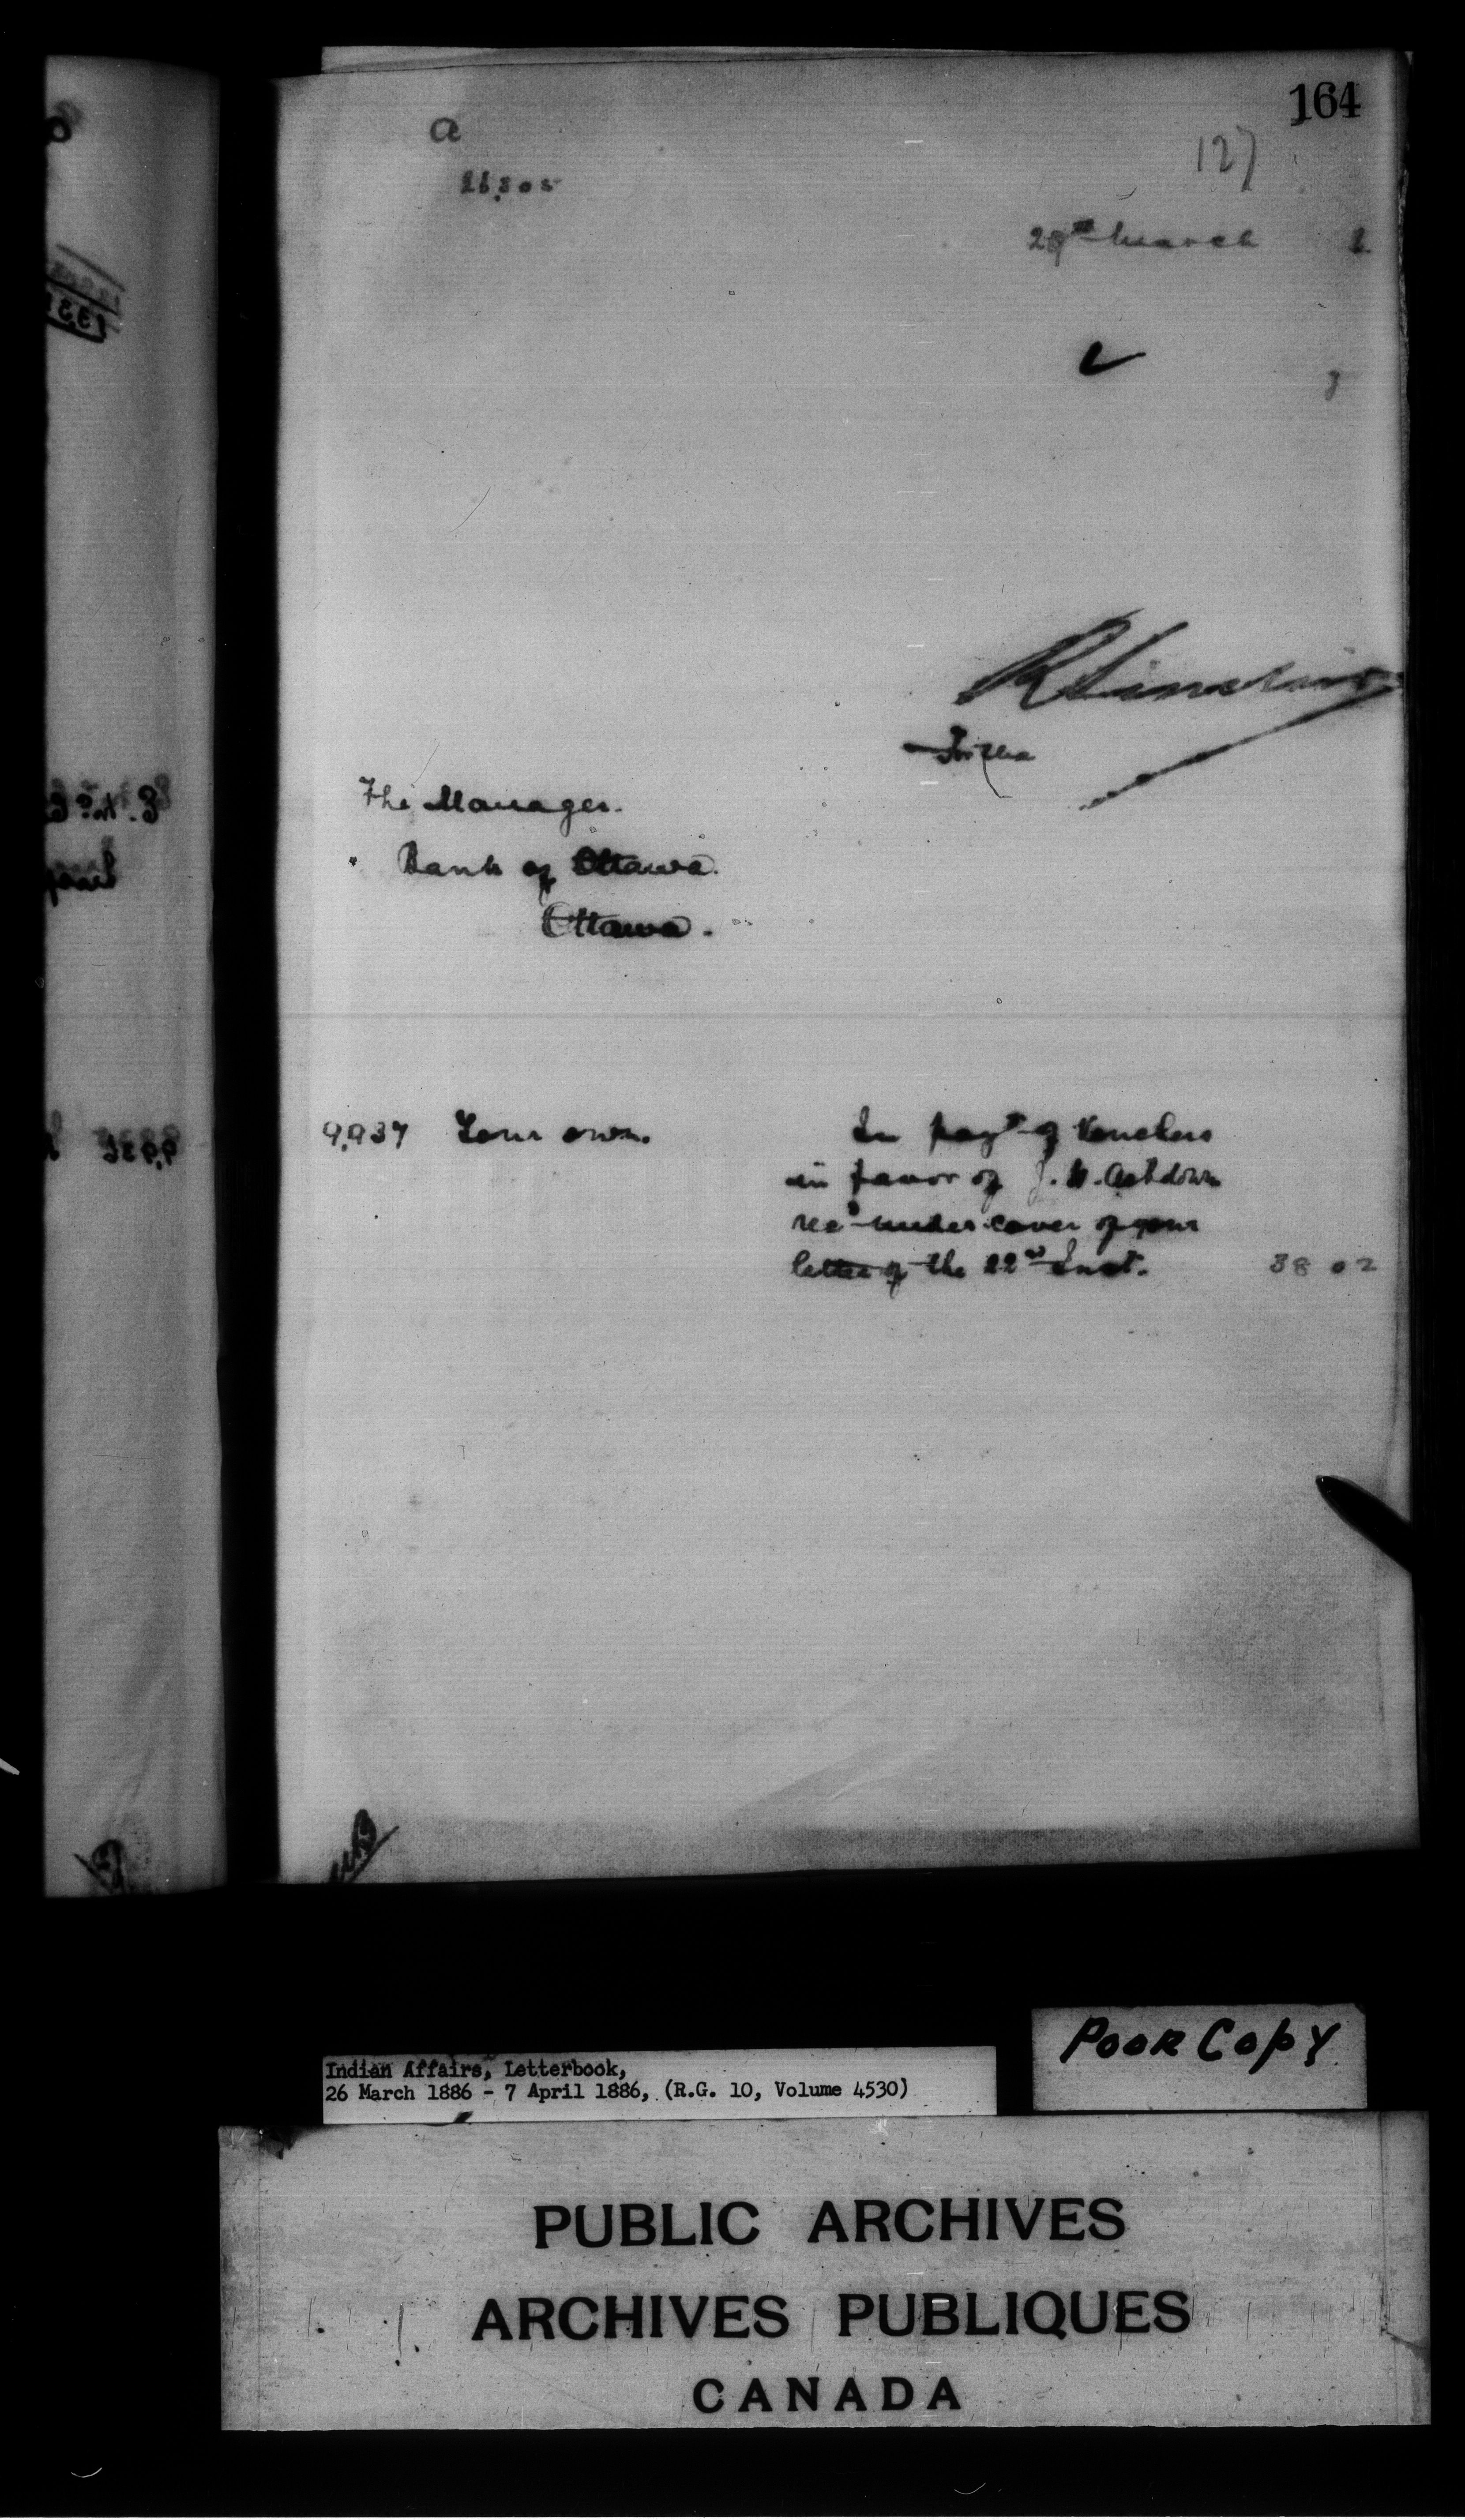 164
a
127
26,305
29th March
R Sinclair
For the
The Manager.
Bank of Ottawa.
Ottawa.
9,937 Your own. In payt of Vouchers
in favor of J. H. Ashdown
recd under cover of your
letter of the 22nd Inst. 38 02
Poor Copy
Indian Affairs, Letterbook,
26 March 1886 - 7 April 1886, (R.G. 10, Volume 4530)
PUBLIC ARCHIVES
ARCHIVES PUBLIQUES
CANADA